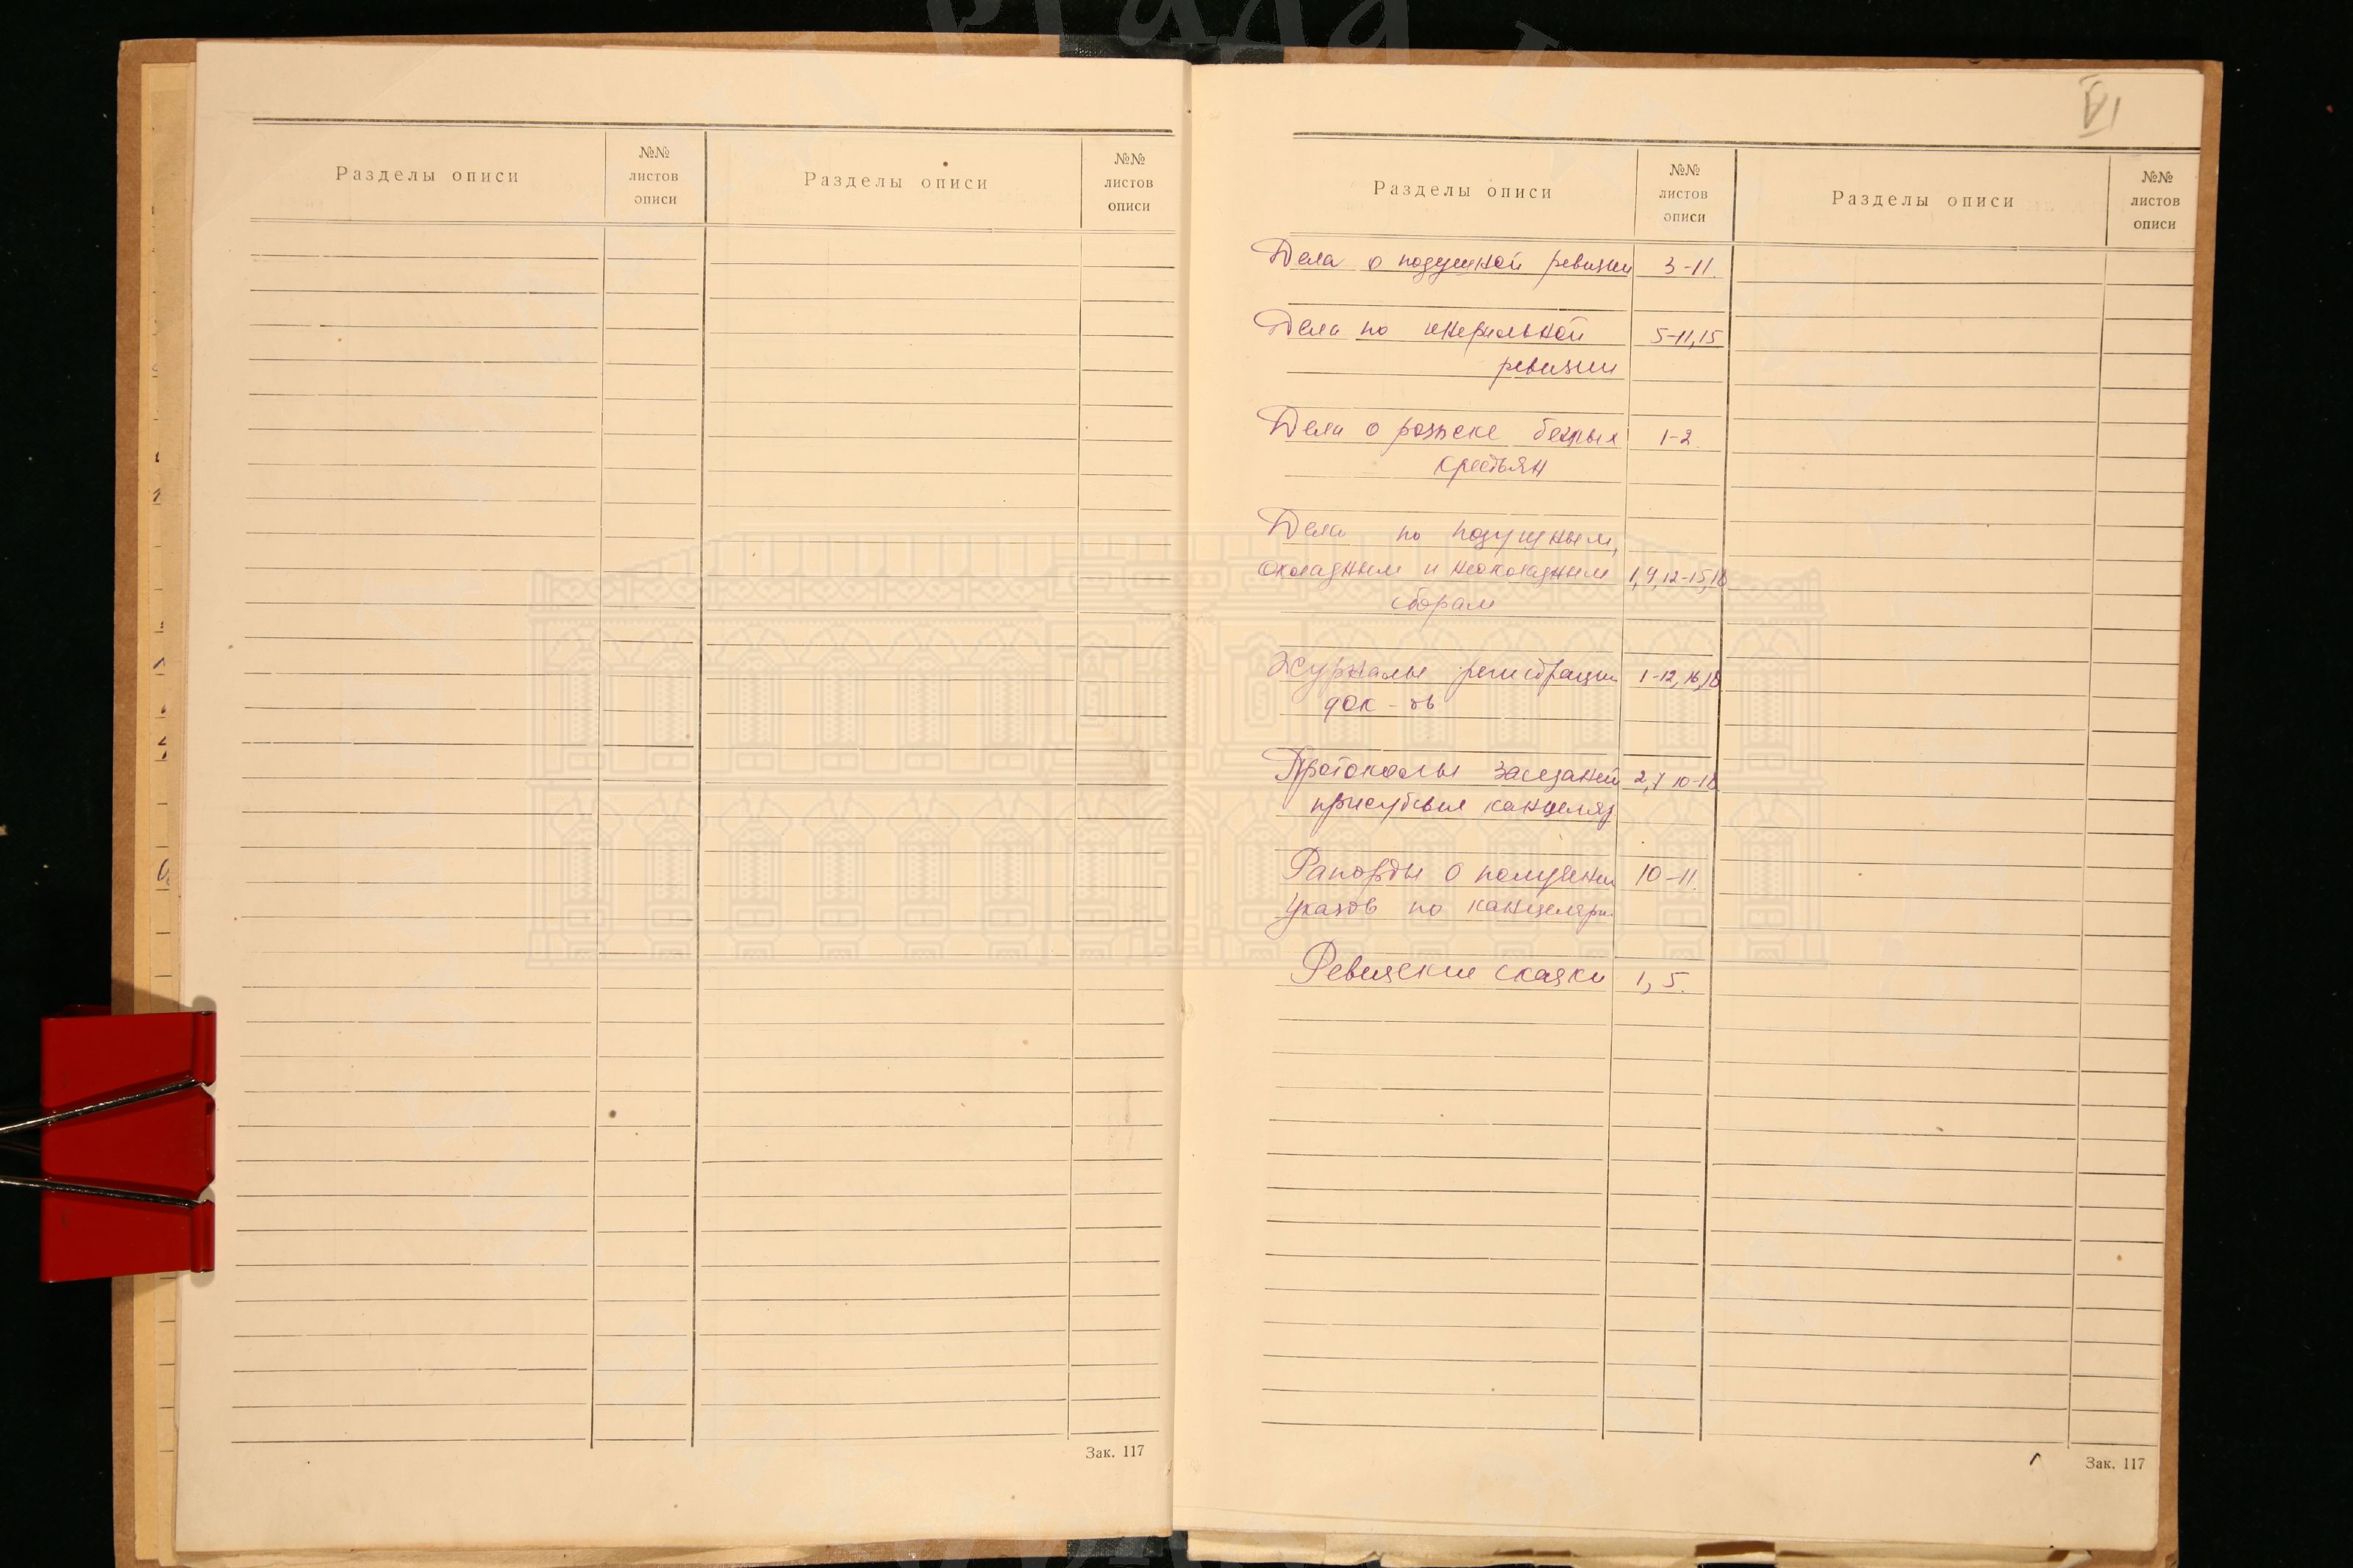 Разделы описи
№№
листов
описи
Разделы описи
№№
листов
описи
Зак. 117
VI
Разделы описи
№№
листов
описи
Разделы описи
№№
листов
описи
Дела о подушной ревизии 3-11.
Дела по генеральной 5-11,15
ревизии
Дела о розыске беглых 1-2.
крестьян
Дела по подушным,
окладным и неокладным 1,9,12-15,18
сборам
Журналы регистрации 1-12,16,18
док-ов
Протоколы заседаний 2,7 10-18
присутствия канцеляр
Рапорты о получении 10-11.
указов по канцелярии
Ревизские сказки 1, 5.
Зак. 117